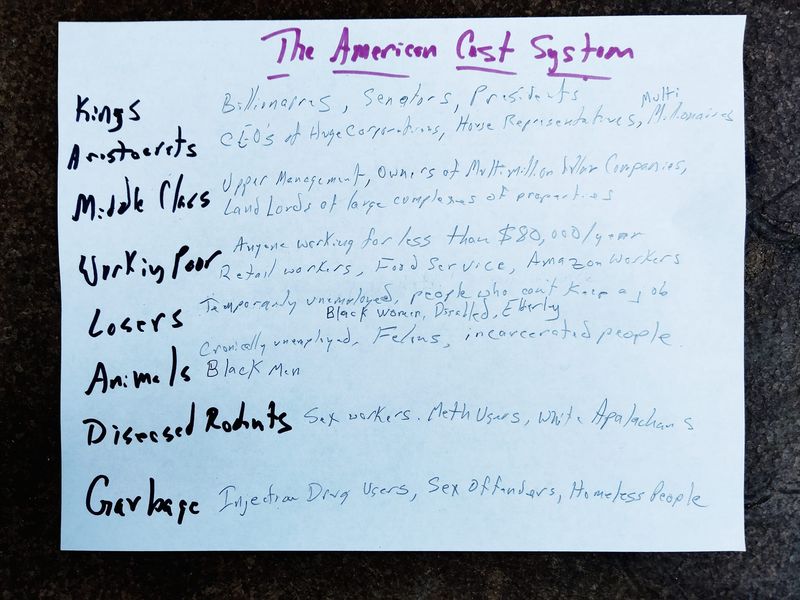 The American Cast System
Kings Billionares, Senators, Presidents
Aristocrats CEO's of Huge Corporations, House Representatives, Multi Millionaires
Middle Class Upper Management, Owners of Multimillion dollar Companies,
Land Lords of large complexes of properties
Working Poor Anyone working for less than $80,000/year
Retail workers, Food Service, Amazon Workers
Losers Temporarily unemployed, people who can't keep a job
Black Women, Disabled, Elderly
Animals Cronically unemployed, Felons, incarcerated people.
Black Men
Diseased Rodents Sex workers. Meth Users, White Apalachans
Garbage Injection Drug Users, Sex Offenders, Homeless People